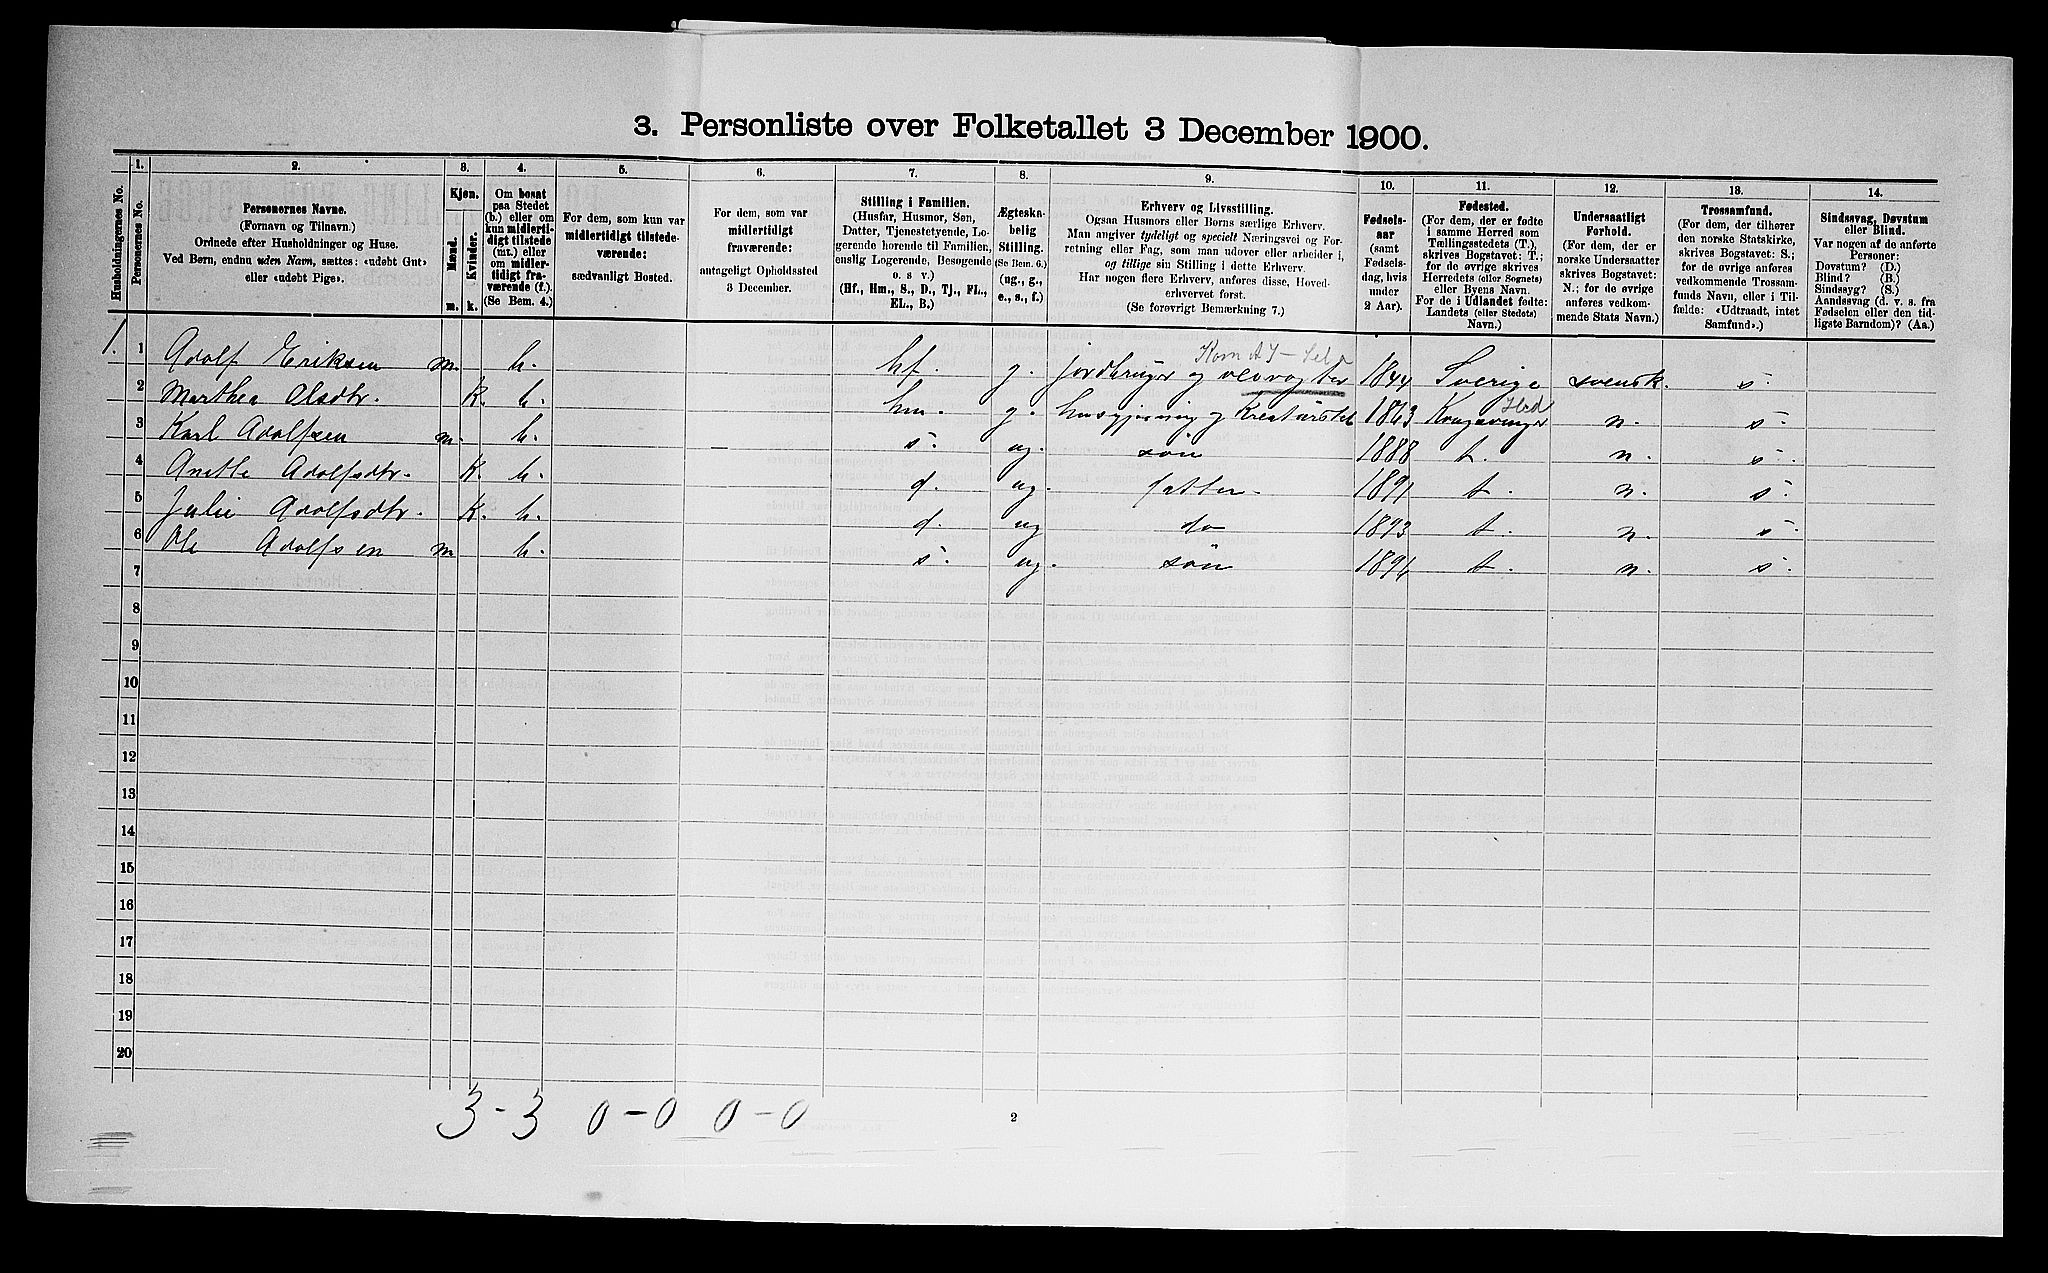 3. Personliste over Folketallet 3 December 1900.
Husholdningernes No.
1.
Personernes No.
2.
Personernes Navne.
(Fornavn og Tilnavn.)
Ordnede efter Husholdninger og Huse.
Ved Børn, endnu uden Navn, sættes: «udøbt Gut»
eller «udøbt Pige».
3.
Kjøn.
Mænd.
Kvinder.
m.
k.
4.
Om bosat
paa Stedet
(b.) eller om
kun midler-
tidigt tilstede
(mt.) eller
om midler-
tidigt fra-
værende (f.).
(Se Bem. 4.)
5.
For dem, som kun var
midlertidigt tilstede-
værende:
sædvanligt Bosted.
6.
For dem, som var
midlertidigt
fraværende:
antageligt Opholdssted
3 December.
7.
Stilling i Familien.
(Husfar, Husmor, Søn,
Datter, Tjenestetyende, Lo-
gerende hørende til Familien,
enslig Logerende, Besøgende
o. s v.)
(Hf., Hm., S., D., Tj., FL.,
EL., B.)
8.
Ægteska-
belig
Stilling.
(Se Bem. 6.)
(ug., g.,
e., s., f.)
9.
Erhverv og Livsstilling.
Ogsaa Husmors eller Børns særlige Erhverv.
Man angiver tydeligt og specielt Næringsvei og For-
retning eller Fag, som man udover eller arbeider i,
og tillige sin Stilling i dette Erhverv.
Har nogen flere Erhverv, anføres disse, Hoved-
erhvervet først.
(Se forøvrigt Bemærkning 7.)
10.
Fødsels-
aar
(samt
Fødsels-
dag, hvis
under
2 Aar).
11.
Fødested.
(For dem, der er fødte
i samme Herred som
Tællingsstedets (T.),
skrives Bogstavet: T.;
for de øvrige skrives
Herredets (eller Sognets)
eller Byens Navn.
For de i Udlandet fødte:
Landets (eller Stedets)
Navn.)
12.
Undersaatligt
Forhold.
(For dem, der er
norske Undersaatter
skrives Bogstavet:
N.; for de øvrige
anføres vedkom-
mende Stats Navn.)
13.
Trossamfund.
(For dem, der tilhører
den norske Statskirke,
skrives Bogstavet: S.;
for de øvrige anføres
vedkommende Trossam-
funds Navn, eller i Til-
fælde: «Udtraadt, intet
Samfund».)
14.
Sindssvag, Døvstum
eller Blind.
Var nogen af de anførte
Personer:
Døvstum? (D.)
Blind? (B.)
Sindssyg? (S.)
Aandssvag (d. v. s. fra
Fødselen eller den tid-
ligste Barndom)? (Aa.)
1. 1 Adolf Eriksen m. b. hf. g. jordbruger og 1844 Sverige svensk. s.
2 Marthea Olsdtr. k. b. hm. g. husgjerning og Kreaturstel 1863 Kongsvinger Hrd n. s.
3 Karl Adolfsen m. b. s. ug. søn 1888 t. n. s.
4 Anette Adolfsdtr. k. b. d. ug. datter 1891 t. n. s.
5 Julie Adolfsdtr. k. b. d. ug do 1893 t. n. s.
6 Ole Adolfsen m b. s. ug. søn 1896 t. n. s.
7
8
9
10
11
12
13
14
15
16
17
18
19
20
3 - 3 0 - 0 0 - 0
2